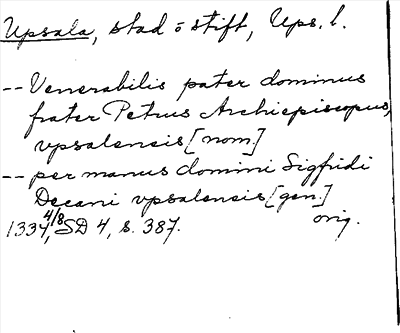 Upsala, stad o stift, Ups. l.
-- Venerabilis pater dominus
frater Petrus Archiepiscopus,
vpsalensis [nom.]
-- per manus domini Sigfridi
Decani vpsalensis [gen.]
1334 4/8, SD 4, s. 387. orig.